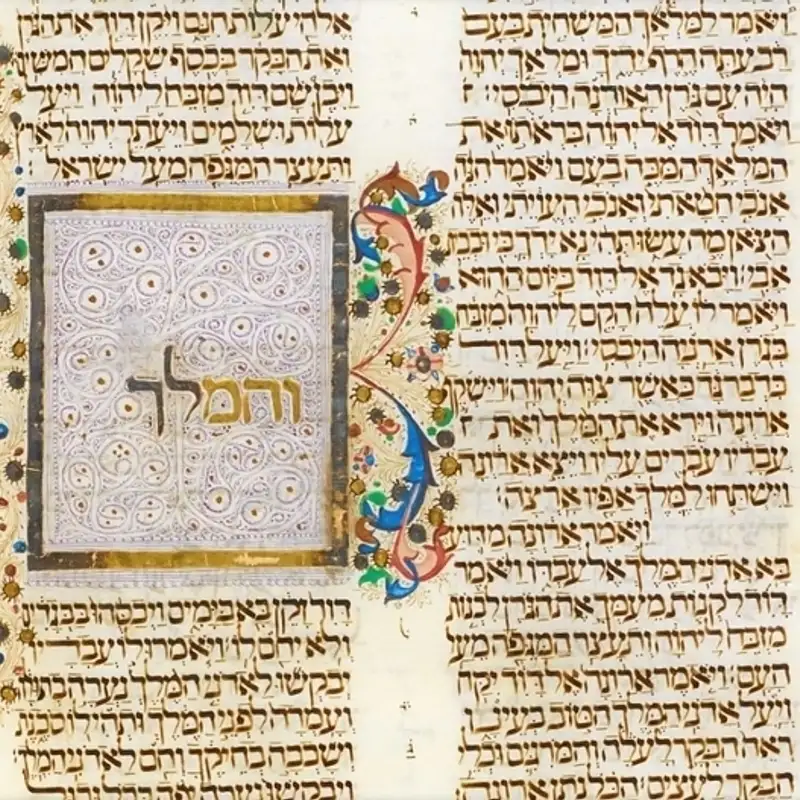 ויאמר למלאך המשחית בעם
רב עתה הרף ידך ומלאך יהוה
היה עם גרן האורנה היבסי׃
ויאמר דוד אל יהוה בראתו את
המלאך המכה בעם ויאמר הנה
אנכי חטאתי ואנכי העויתי ואלה
הצאן מה עשו תהי נא ידך בי ובבית
אבי׃ ויבא גד אל דוד ביום ההוא
ויאמר לו עלה הקם ליהוה מזבח
בגרן ארניה היבסי׃ ויעל דוד
כדבר גד כאשר צוה יהוה׃ וישקף
ארונה וירא את המלך ואת
עבדיו עברים עליו ויצא ארונה
וישתחו למלך אפיו ארצה׃
ויאמר ארונה מדוע
בא אדני המלך אל עבדו ויאמר
דוד לקנות מעמך את הגרן לבנות
מזבח ליהוה ותעצר המגפה מעל
העם׃ ויאמר ארונה אל דוד יקח
ויעל אדני המלך הטוב בעיניו
ראה הבקר לעלה והמרגים וכלי
הבקר לעצים׃ הכל נתן ארונה
אלהי עלות חנם ויקן דוד את הגרן
ואת הבקר בכסף שקלים חמשים׃
ויבן שם דוד מזבח ליהוה ויעל
עלות ושלמים ויעתר יהוה לארץ
ותעצר המגפה מעל ישראל
והמלך
דוד זקן בא בימים ויכסהו בבגדים
ולא יחם לו׃ ויאמרו לו עבדיו
יבקשו לאדני המלך נערה בתולה
ועמדה לפני המלך ותהי לו סכנת
ושכבה בחיקך וחם לאדני המלך׃
ויבקשו נערה יפה בכל גבול